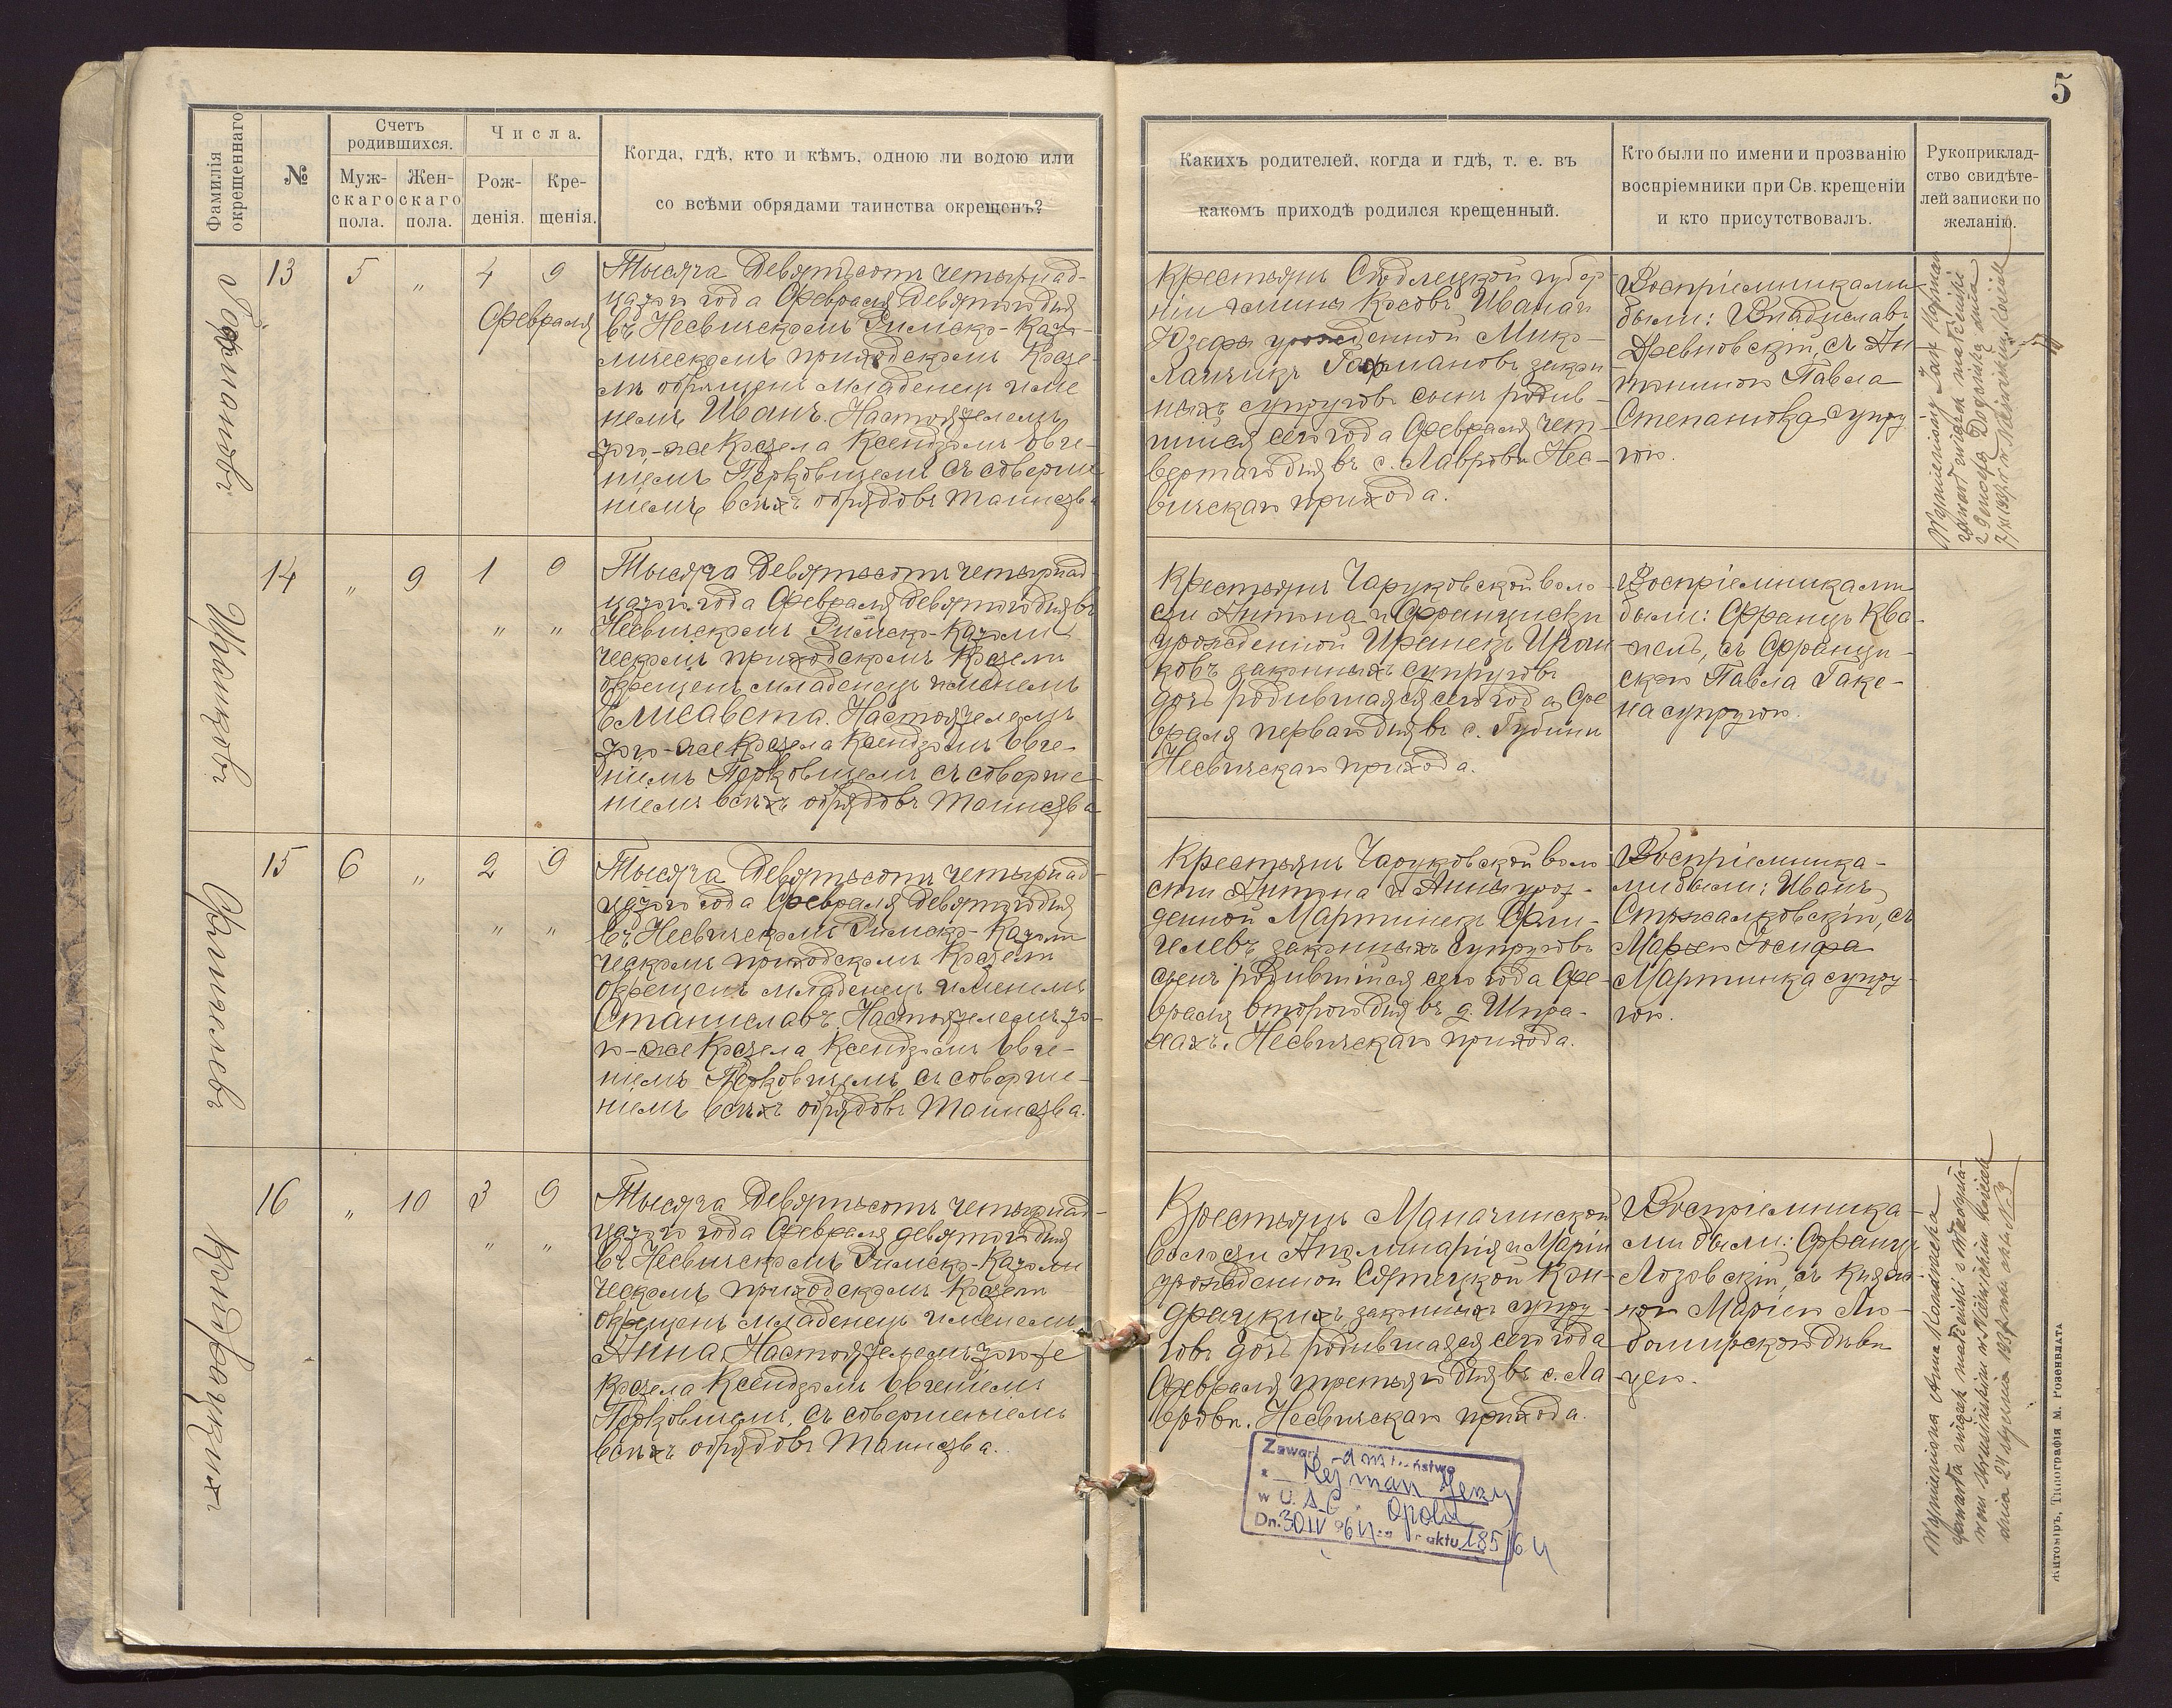 5
Фамилія окрещеннаго
№
Счетъ родившихся.
Муж-
скаго
пола.
Жен-
скаго
пола.
Числа.
Рож-
денія.
Кре-
щенія.
Когда, гдѣ, кто и кѣмъ, одною ли водою или
со всѣми обрядами таинства окрещенъ?
Какихъ родителей, когда и гдѣ, т. е. въ
какомъ приходѣ родился крещенный.
Кто были по имени и прозванію
воспріемники при Св. крещеніи
и кто присутствовалъ.
Рукоприклад-
ство свидѣте-
лей записки по
желанію.
Гофмановъ
13
5
„
4
9
Февраля
Тысяча девятьсотъ четырнад-
цатого года Февраля девятого дня
въ Несвичскомъ Римско-Като-
лическомъ приходскомъ Косте-
лѣ окрещенъ младенецъ име
немъ Иванъ. Настоятелемъ
того-же Костела Ксендзомъ Евге-
ніемъ Перковичемъ съ соверше
ніемъ всѣхъ обрядовъ Таинства
Крестьянъ Сѣдлецкой губер-
ніи гмины Косовъ, Ивана и
Юзефы урожденной Мико-
лайчикъ Гофмановъ закон
ныхъ супруговъ сынъ родив-
шійся сего года Февраля чет-
вертаго дня въ с. Лавровѣ Нес-
вичскаго прихода.
Воспріемниками
были: Владиславъ
Древновскій, съ Ан
тониною Павла
Степанюка супру-
гою.
Wymieniony Jan Hofman
zawarł związek małżeński
z Genowefą
14
„
9
1
9
„
„
Тысяча девятьсотъ четырнад-
цатого года Февраля девятого дня въ
Несвичскомъ Римско-Католи
ческомъ приходскомъ Костелѣ
окрещенъ младенецъ именемъ
Елисавета. Настоятелемъ
того-же Костела Ксендзомъ Евге-
ніемъ Перковичемъ съ соверше-
ніемъ всѣхъ обрядовъ Таинства
Крестьянъ Чаруковской воло-
сти Антона и Францишки
урожденной
законныхъ супруговъ
дочь родившаяся сего года Фе
враля перваго дня въ с. Губини
Несвичскаго прихода.
Воспріемниками
были: Францъ Ква-
пель, съ Франци-
скою Павла Гаке-
на супругою.
15
6
„
2
9
„
„
Тысяча девятьсотъ четырнад-
цатого года Февраля девятого дня
въ Несвичскомъ Римско-Католи
ческомъ приходскомъ Костелѣ
окрещенъ младенецъ именемъ
Станиславъ. Настоятелемъ то-
го-же Костела Ксендзомъ Евге-
ніемъ Перковичемъ, съ соверше-
ніемъ всѣхъ обрядовъ Таинства.
Крестьянъ Чаруковской воло-
сти Антона и Анны урож-
денной Мартинекъ
законныхъ супруговъ
сынъ родившійся сего года Фе-
враля второго дня въ д.
Несвичскаго прихода.
Воспріемника-
ми были: Иванъ
Стржалковскій, съ
Маріею Іосифа
Мартинка супру-
гою.
Кондрацкихъ
16
„
10
3
9
„
„
Тысяча девятьсотъ четырнад-
цатого года Февраля девятого дня
въ Несвичскомъ Римско-Католи
ческомъ приходскомъ Костелѣ
окрещенъ младенецъ именемъ
Анна. Настоятелемъ того же
Костела Ксендзомъ Евгеніемъ
Перковичемъ, съ совершеніемъ
всѣхъ обрядовъ Таинства.
Крестьянъ
волости Аполинарія и Маріи
урожденной Кон-
драцкихъ законныхъ супру-
говъ дочь родившаяся сего года
Февраля третьяго дня въ с. Ла
вровѣ. Несвичскаго прихода.
Воспріемника-
ми были: Францъ
Лозовскій, съ Княж-
ною Маріею Лю-
бомирскою дѣви
цею.
Wymieniona Anna Kondracka
zawarła związek małżeński z
dnia 24 stycznia
Zawarł małżeństwo
z Rejman Jerzy
w U.S.C. Opolu
Dn. 30 IV 964 nr aktu 185/64
Житоміръ, Типографія М. Розенблата